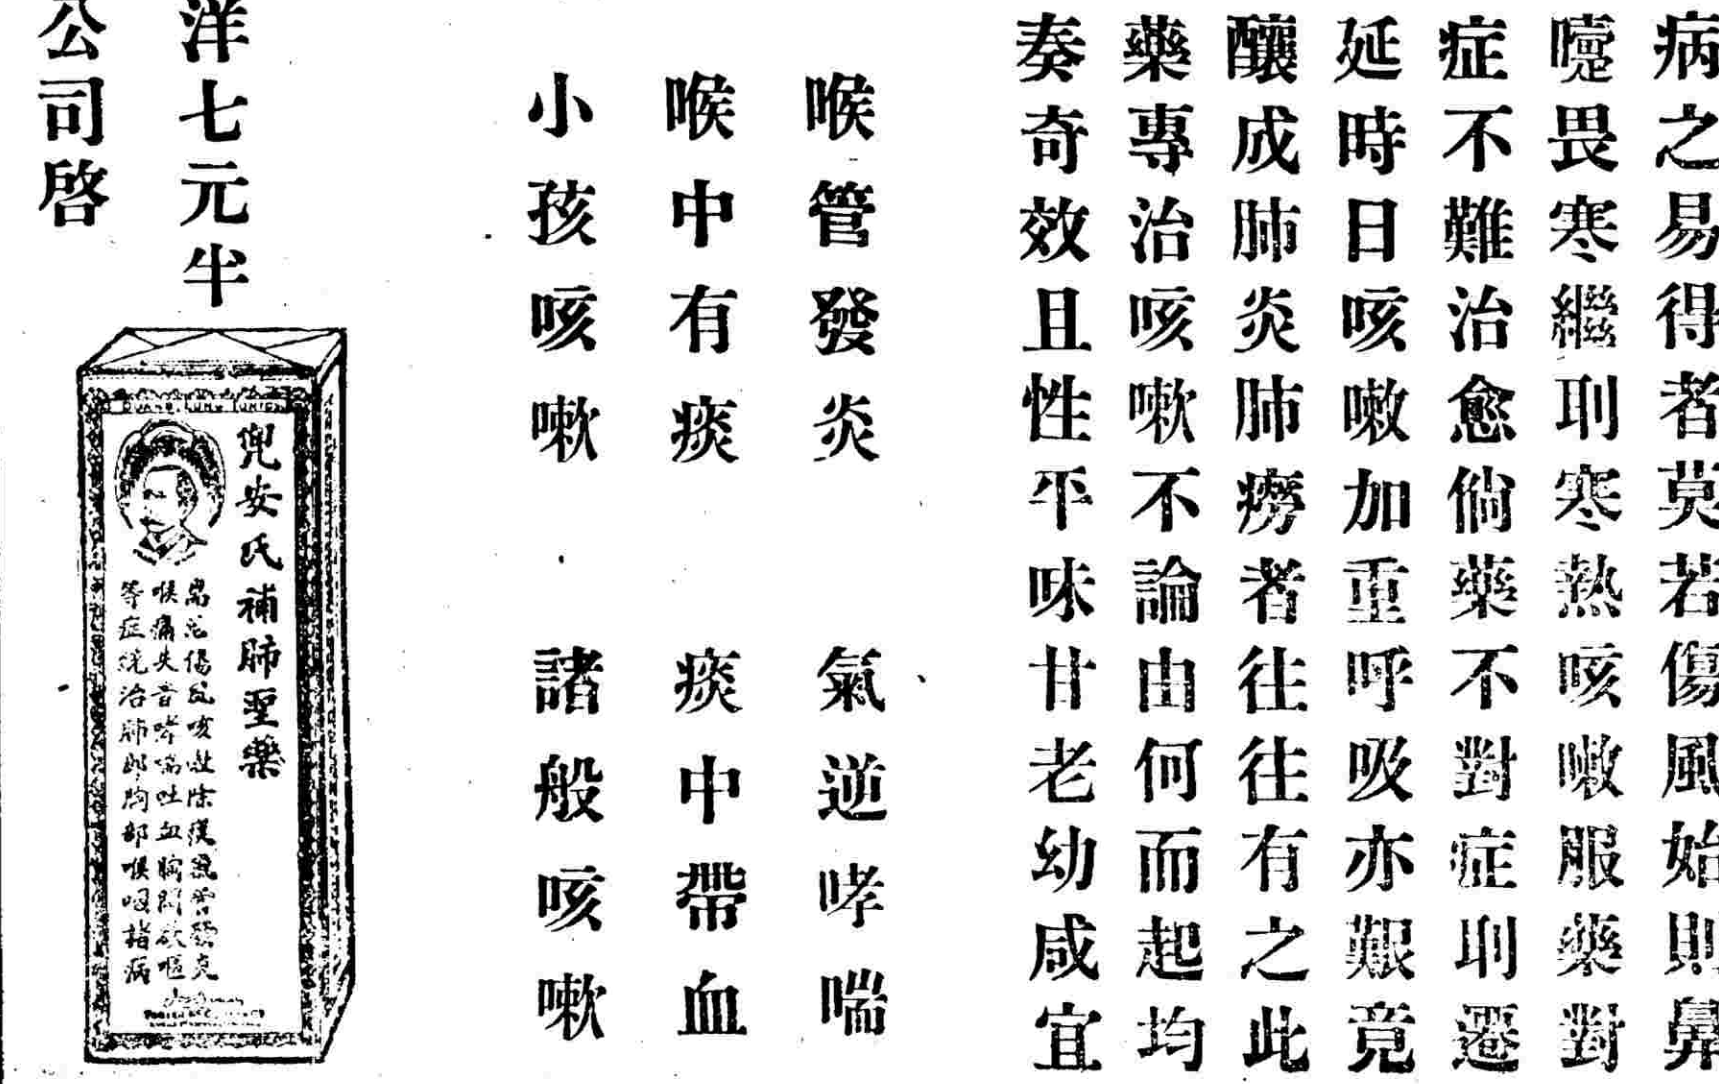 病之易得者莫若傷風始則鼻
嚏畏寒繼則寒熱咳嗽服藥對
症不難治愈倘藥不對症則遷
延時日咳嗽加重呼吸亦艱竟
釀成肺炎肺癆者往往有之此
藥專治咳嗽不論由何而起均
奏奇效且性平味甘老幼咸宜
喉管發炎 氣逆哮喘
喉中有痰 痰中帶血
小孩咳嗽 諸般咳嗽
洋七元半
公司啓
兜安氏補肺聖藥
傷風咳嗽除痰
喉痛失音哮喘吐血胸
等症統治肺部胸部喉咽諸病